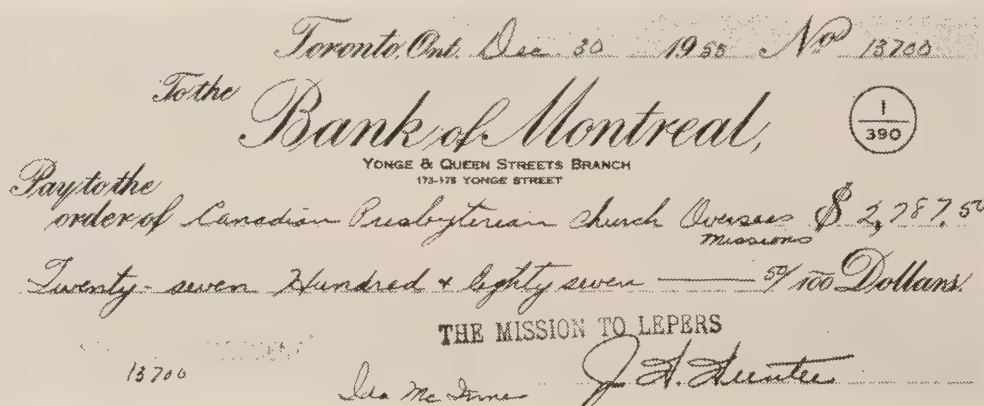 Toronto, Ont. Dec 30 1955 No 13700
To the
Bank of Montreal,
1
390
YONGE & QUEEN STREETS BRANCH
173-175 YONGE STREET
Pay to the
order of Canadian Presbyterian Church Overseas $ 2,787.50
Missions
Twenty-seven Hundred & Eighty seven —— 50/100 Dollars.
THE MISSION TO LEPERS
13700
Ida Mc J. H. Hunter